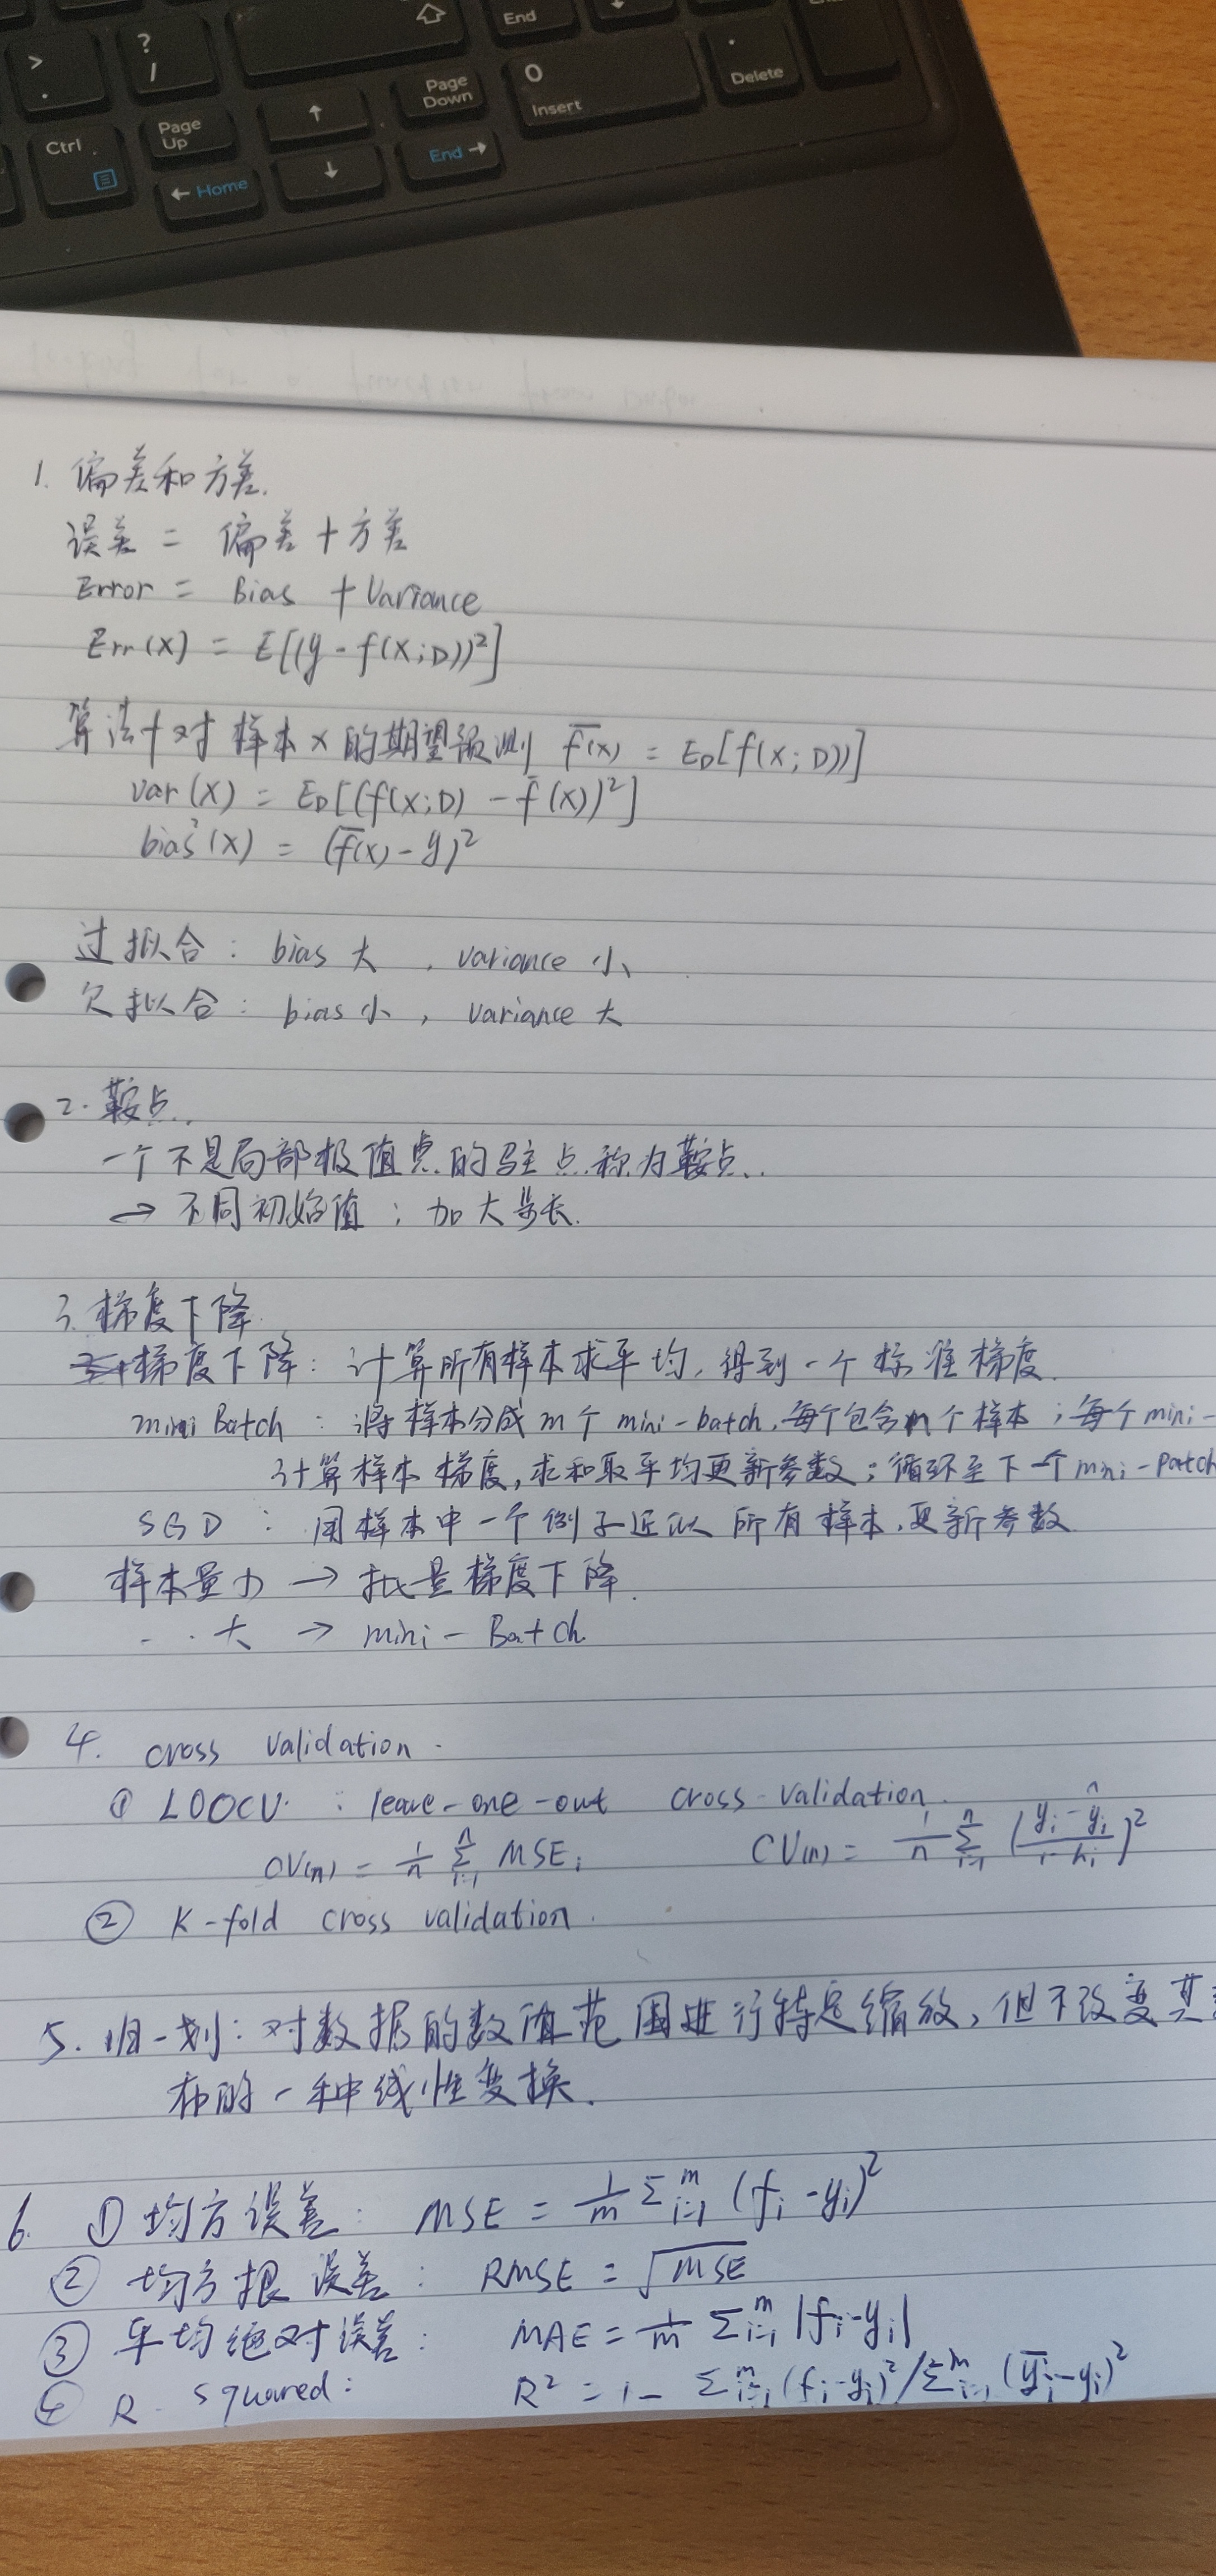 >
.
?
/
End
Page Down
0
Insert
.
Delete
Ctrl
Page Up
↑
End →
← Home
↓
1. 偏差和方差.
误差 = 偏差 + 方差
Error = Bias + Variance
Err(x) = E[(y - f(x;D))²]
算法f对样本x的期望预测 f̅(x) = E_D[f(x;D))]
var(x) = E_D[(f(x;D) - f̅(x))²]
bias²(x) = (f̅(x) - y)²
过拟合: bias 大, variance 小
欠拟合: bias 小, variance 大
2. 鞍点.
一个不是局部极值点的驻点称为鞍点.
→ 不同初始值; 加大步长.
3. 梯度下降
梯度下降: 计算所有样本求平均, 得到一个标准梯度.
mini Batch: 将样本分成m个mini-batch, 每个包含n个样本; 每个mini-
计算样本梯度, 求和取平均更新参数; 循环至下一个mini-Patch
SGD: 用样本中一个例子近似所有样本, 更新参数
样本量小 → 批量梯度下降.
. . 大 → mini-Batch.
4. cross validation.
① LOOCV: leave-one-out cross-validation.
CV(n) = 1/n Σ_{i=1}^n MSE_i CV(n) = 1/n Σ_{i=1}^n ((y_i - ŷ_i)/(1 - h_i))²
② K-fold cross validation.
5. 归一划: 对数据的数值范围进行特定缩放, 但不改变其
布的一种线性变换.
6. ① 均方误差: MSE = 1/m Σ_{i=1}^m (f_i - y_i)²
② 均方根误差: RMSE = √MSE
③ 平均绝对误差: MAE = 1/m Σ_{i=1}^m |f_i - y_i|
④ R squared: R² = 1 - Σ_{i=1}^m (f_i - y_i)² / Σ_{i=1}^m (y̅_i - y_i)²